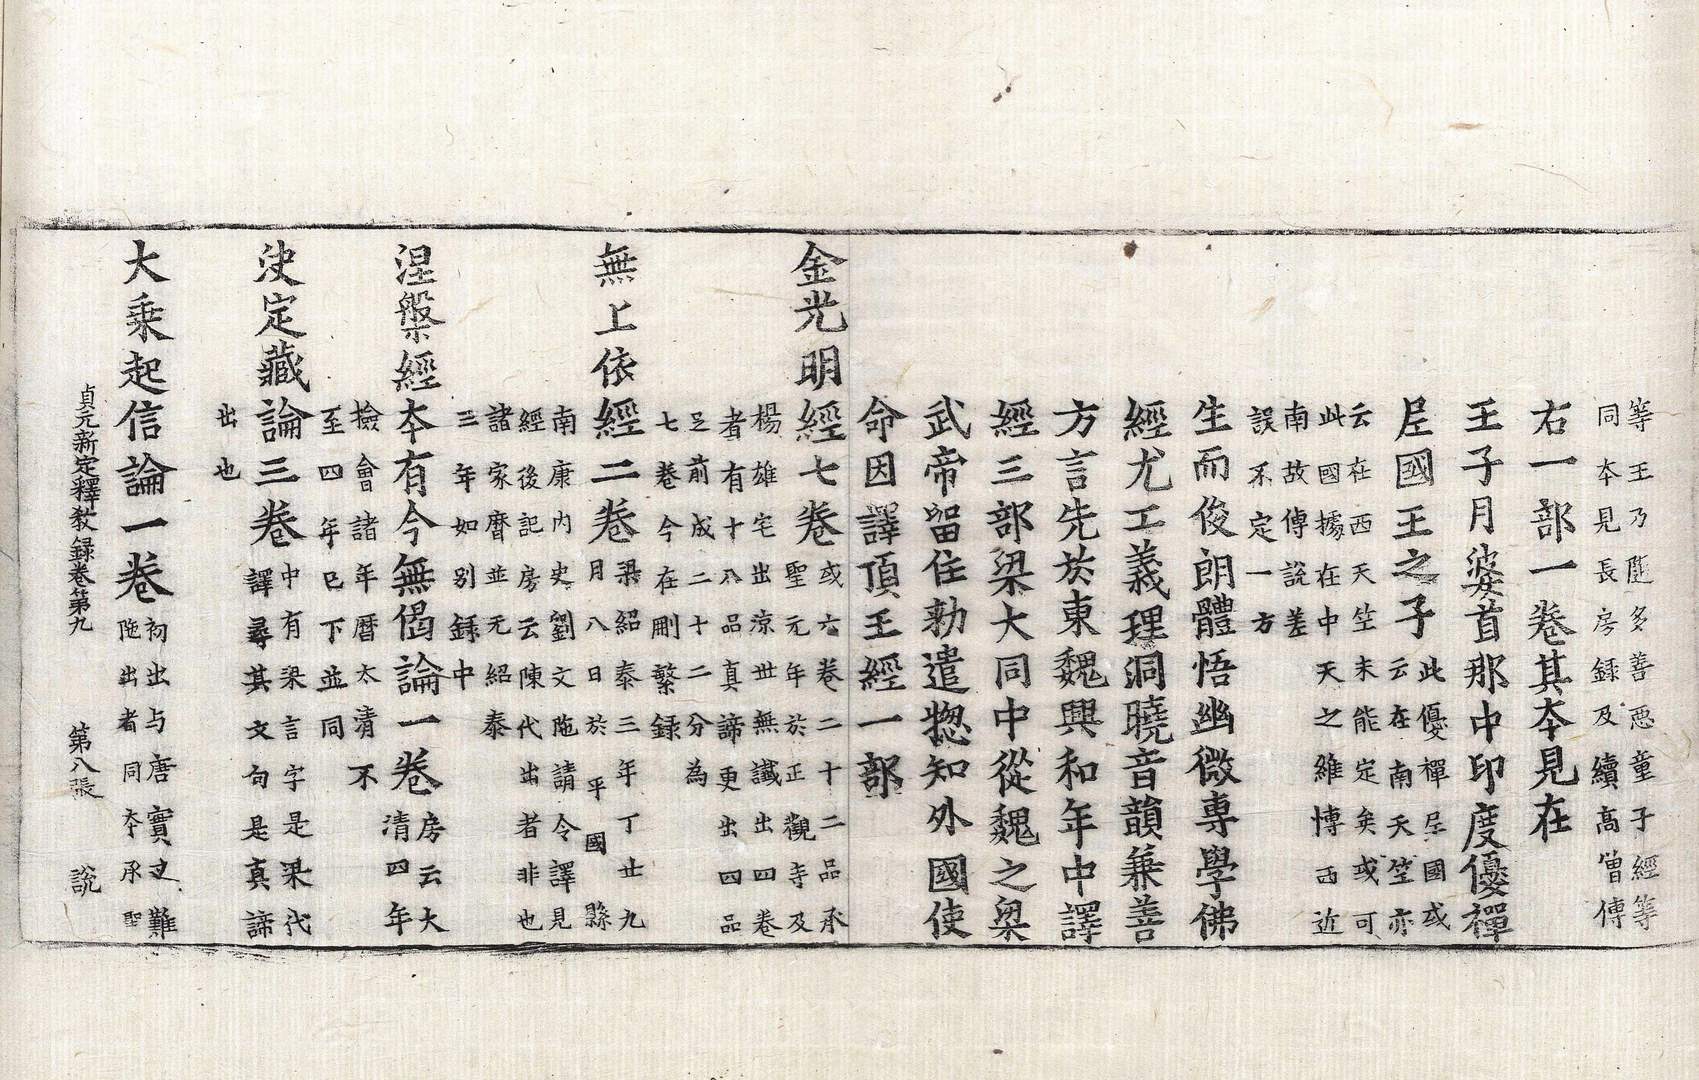 等王乃隨多善惡童子經等
同本見長房錄及續高僧傳
右一部一卷其本見在
王子月婆首那中印度優禪
尼國王之子
此優禪尼國或
云在南天竺亦
云在西天竺未能定矣或可
此國據在中天之維博西近
南故傳說差
誤不定一方
生而俊朗體悟幽微專學佛
經尤工義理洞曉音韻兼善
方言先於東魏興和年中譯
經三部梁大同中從魏之梁
武帝留住勅遣惣知外國使
命因譯頂王經一部
金光明經七卷
或六卷二十二品承
聖元年於正觀寺及
楊雄宅出涼世無讖出四卷
者有十八品真諦更出四品
足前成二十二分為
七卷今在刪繁錄
無上依經二卷
梁紹泰三年丁丑九
月八日於平國縣
南康內史劉文陁請令譯見
經後記房云陳代出者非也
諸家曆並无紹泰
三年如別錄中
涅槃經本有今無偈論一卷
房云大
清四年
撿會諸年曆太清不
至四年已下並同
決定藏論三卷
中有梁言字是梁代
譯尋其文句是真諦
出也
大乘起信論一卷
初出与唐實叉難
陁出者同本承聖
貞元新定釋教錄卷第九 第八張 說